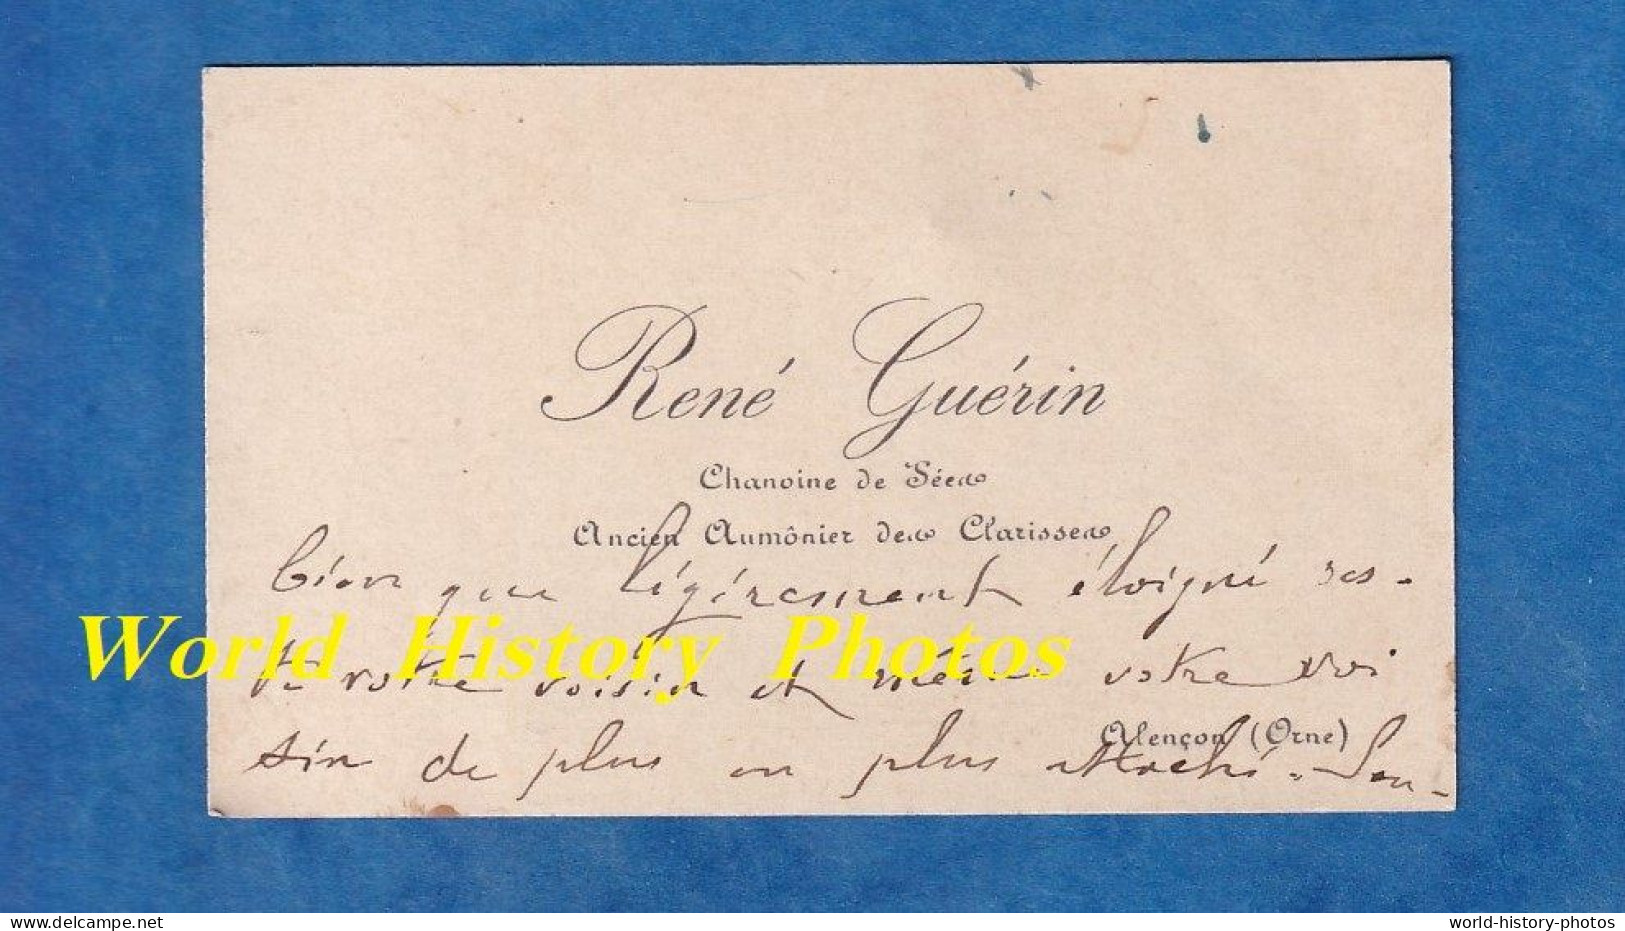 René Guérin
Chanoine de Sées
Ancien Aumônier des Clarisses
bien que légèrement éloigné res-
te votre voisin et même votre voi
sin de plus en plus attaché.
Alençon (Orne)
World History Photos
www.delcampe.net
world-history-photos